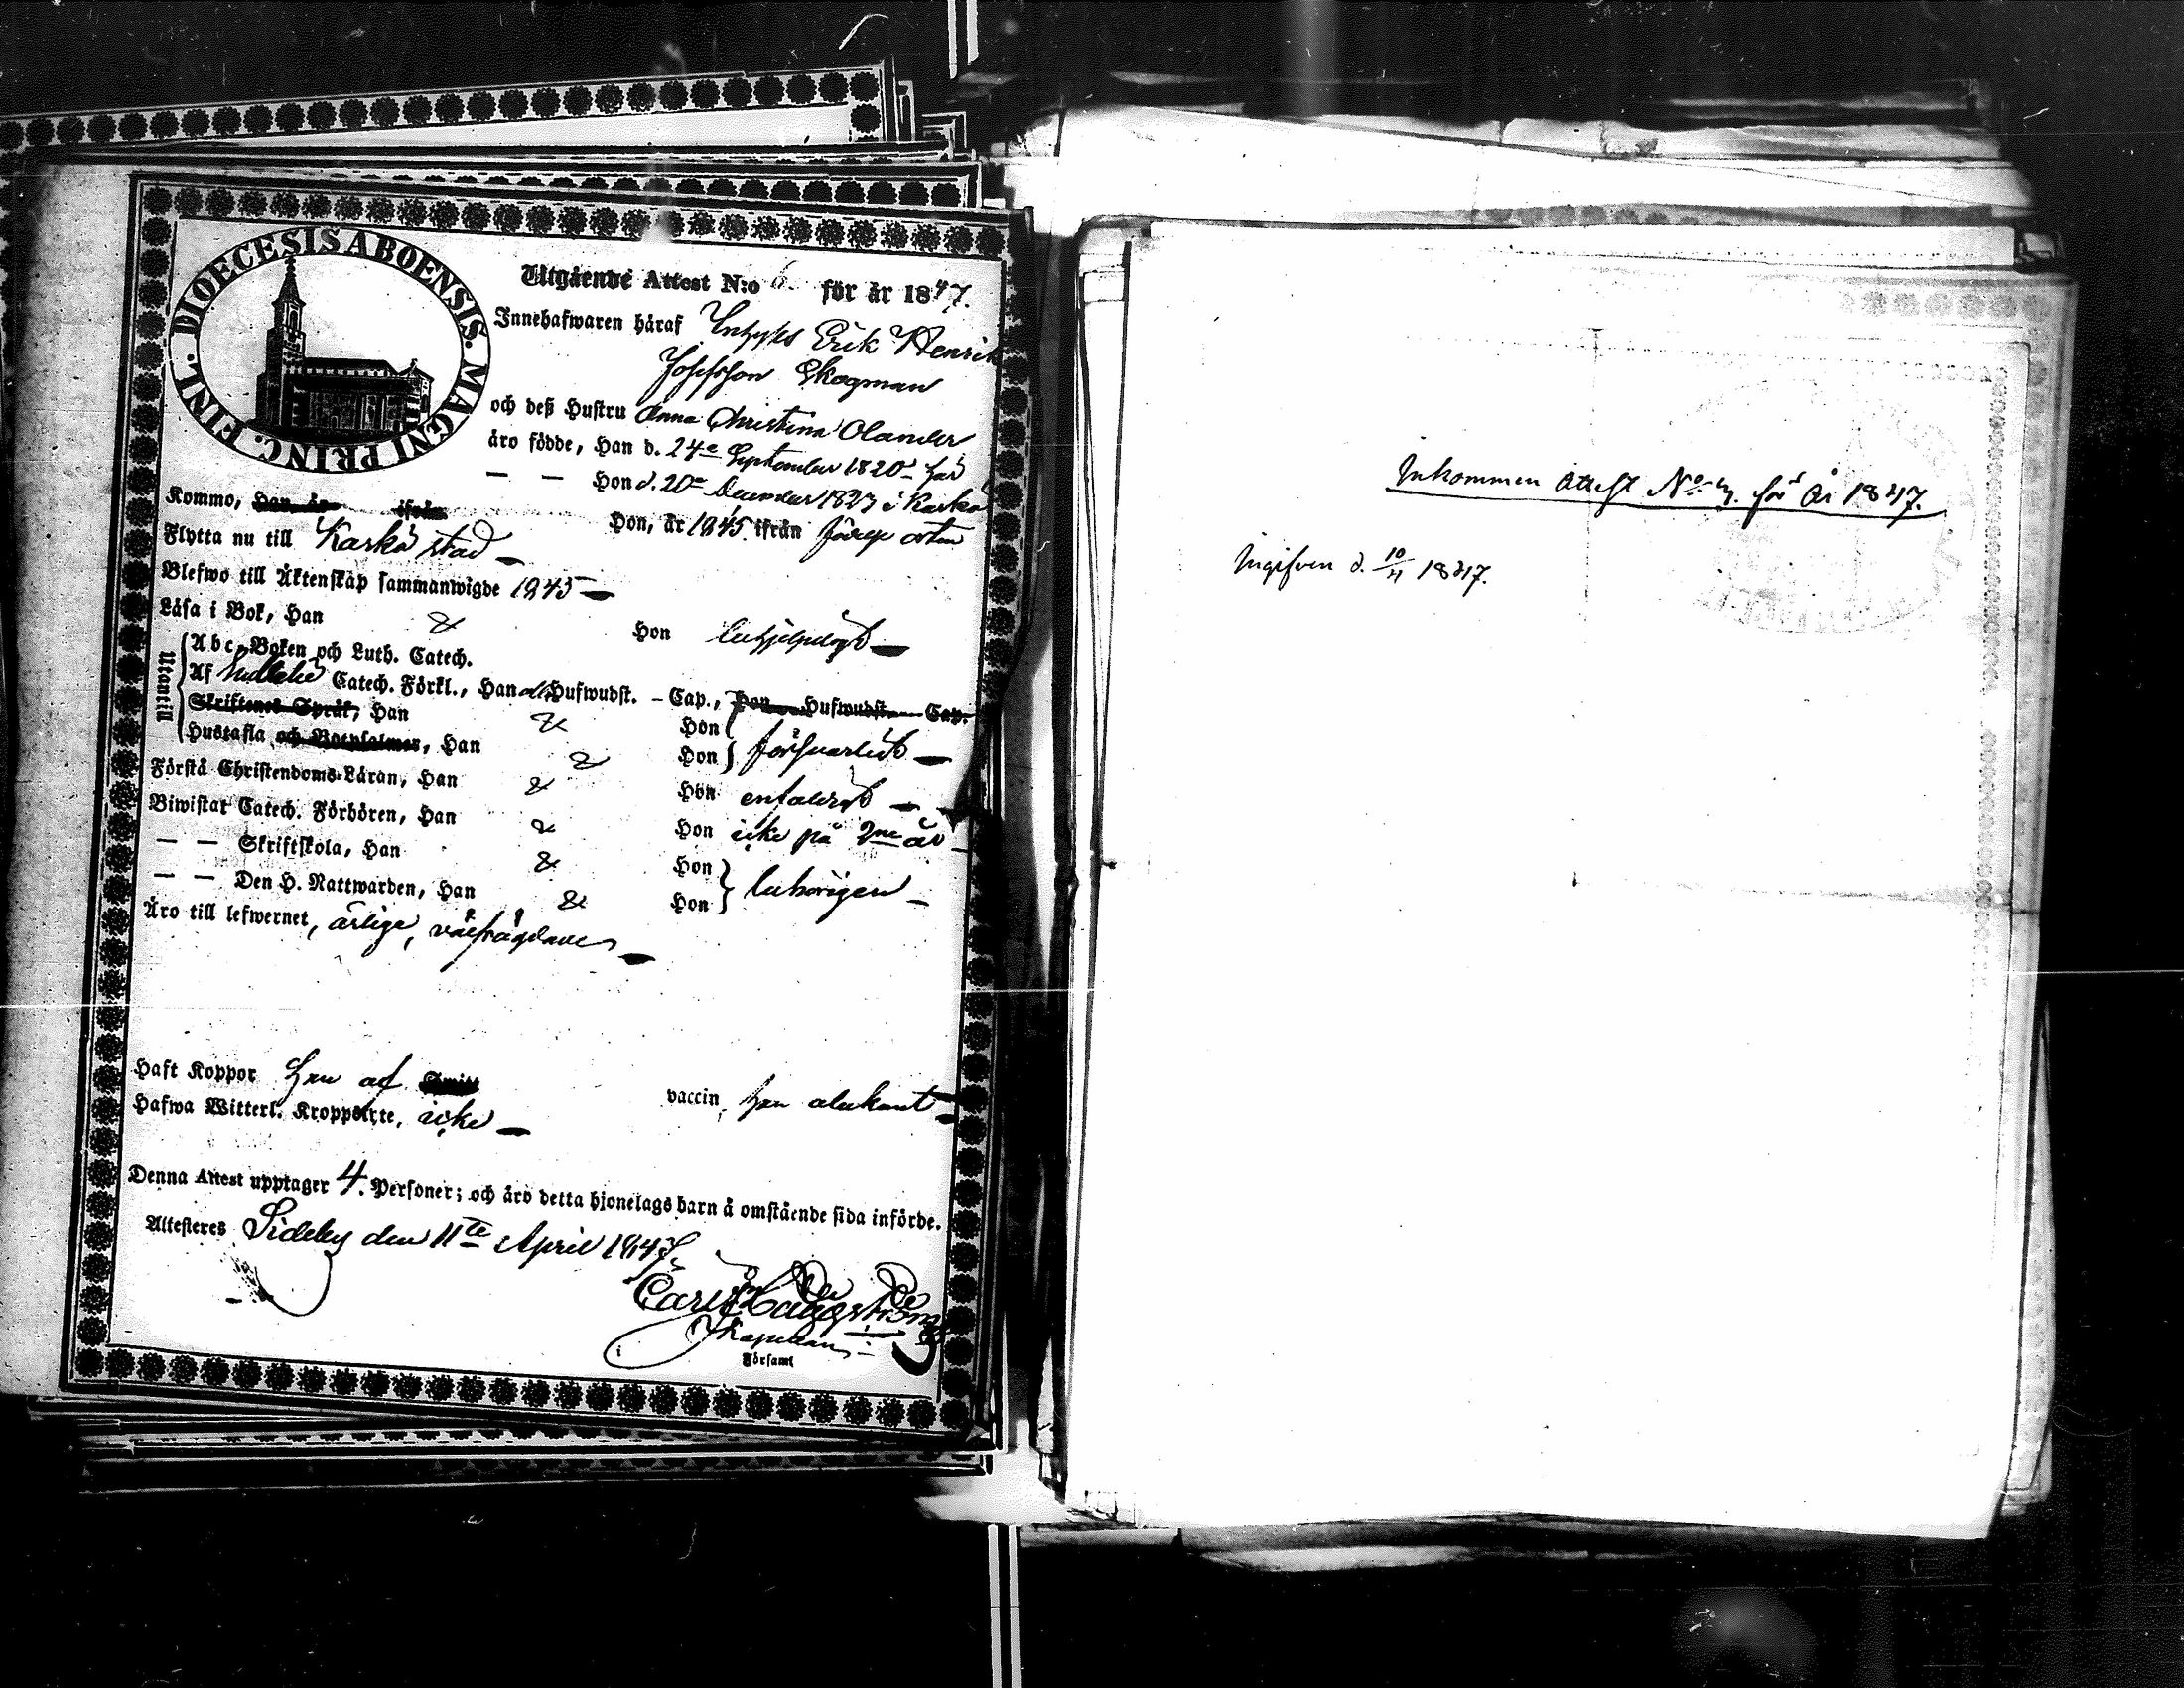 DIOECESIS ABOENSIS. MAGNI PRINC. FINL.
Utgående Attest N:o 6. för år 1847.
Innehafwaren häraf Inhyses Erik Henrik
Josefsson Skogman
och deß Hustru Anna Christina Olander
äro födde, Han d. 24de September 1820 här
— — Hon d. 20de December 1823 i Kaskö
Kommo, Han, år ifrån Hon, år 1845 ifrån
Flytta nu till Kaskö stad —
Blefwo till Äktenskap sammanwigde 1845 —
Läsa i Bok, Han & Hon behjelpligt —
Utantill
Abc-Boken och Luth. Catech.
Af Catech. Förkl., Han Hufwudst. – Cap., Hon Hufwudst. Cap.
Skriftenes Språk, Han & Hon
Hustafla och Botpsalmer, Han & Hon försvarligt —
Förstå Christendoms-Läran, Han & Hon enfaldigt —
Biwistat Catech. Förhören, Han & Hon icke på 2ne år —
— — Skriftskola, Han & Hon
— — Den H. Nattwarden, Han & Hon behörigen —
Äro till lefwernet, ärlige, välfrägdade —
Haft Koppor Han af vaccin, Han obekant —
Hafwa Witterl. Kroppslyte, icke —
Denna Attest upptager 4. Personer; och äro detta hjonelags barn å omstående sida införde.
Attesteres Sideby den 11te April 1847.
Carl Häggström
Kapellan
Församl
Inkommen Attest No 4. för år 1847.
Ingifven d. 10/11 1847.